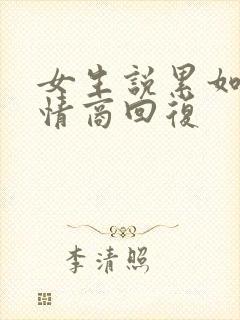 女生説累如
情商回復
李清照